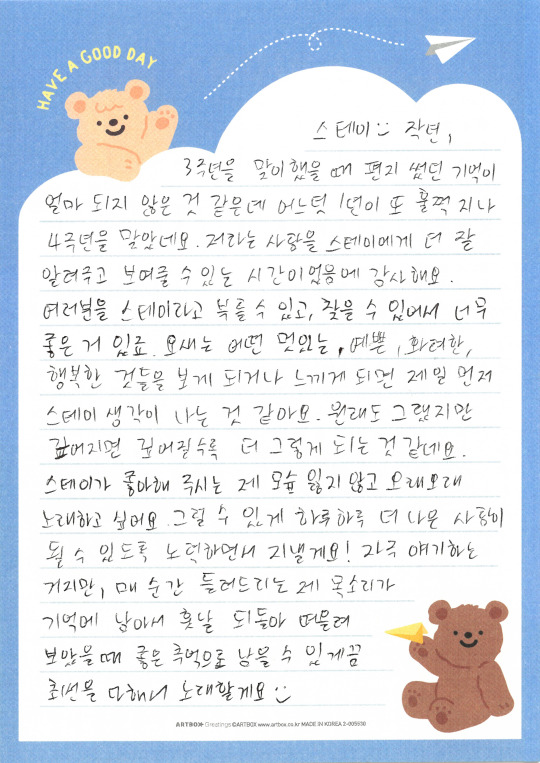 HAVE A GOOD DAY
스테이:) 작년,
3주년을 맞이했을 때 편지 썼던 기억이
얼마 되지 않은 것 같은데 어느덧 1년이 또 훌쩍 지나
4주년을 맞았네요. 저라는 사람을 스테이에게 더 잘
알려주고 보여줄 수 있는 시간이었음에 감사해요.
여러분을 스테이라고 부를 수 있고, 찾을 수 있어서 너무
좋은 거 있죠. 요새는 어떤 멋있는, 예쁜, 화려한,
행복한 것들을 보게 되거나 느끼게 되면 제일 먼저
스테이 생각이 나는 것 같아요. 원래도 그랬지만
깊어지면 깊어질수록 더 그렇게 되는 것 같네요.
스테이가 좋아해 주시는 제 모습 잃지 않고 오래오래
노래하고 싶어요. 그럴 수 있게 하루하루 더 나은 사람이
될 수 있도록 노력하면서 지낼게요! 자주 얘기하는
거지만, 매 순간 들려드리는 제 목소리가
기억에 남아서 훗날 되돌아 떠올려
보았을 때 좋은 추억으로 남을 수 있게끔
최선을 다해서 노래할게요:)
ARTBOX Greetings ©ARTBOX www.artbox.co.kr MADE IN KOREA 2-005530